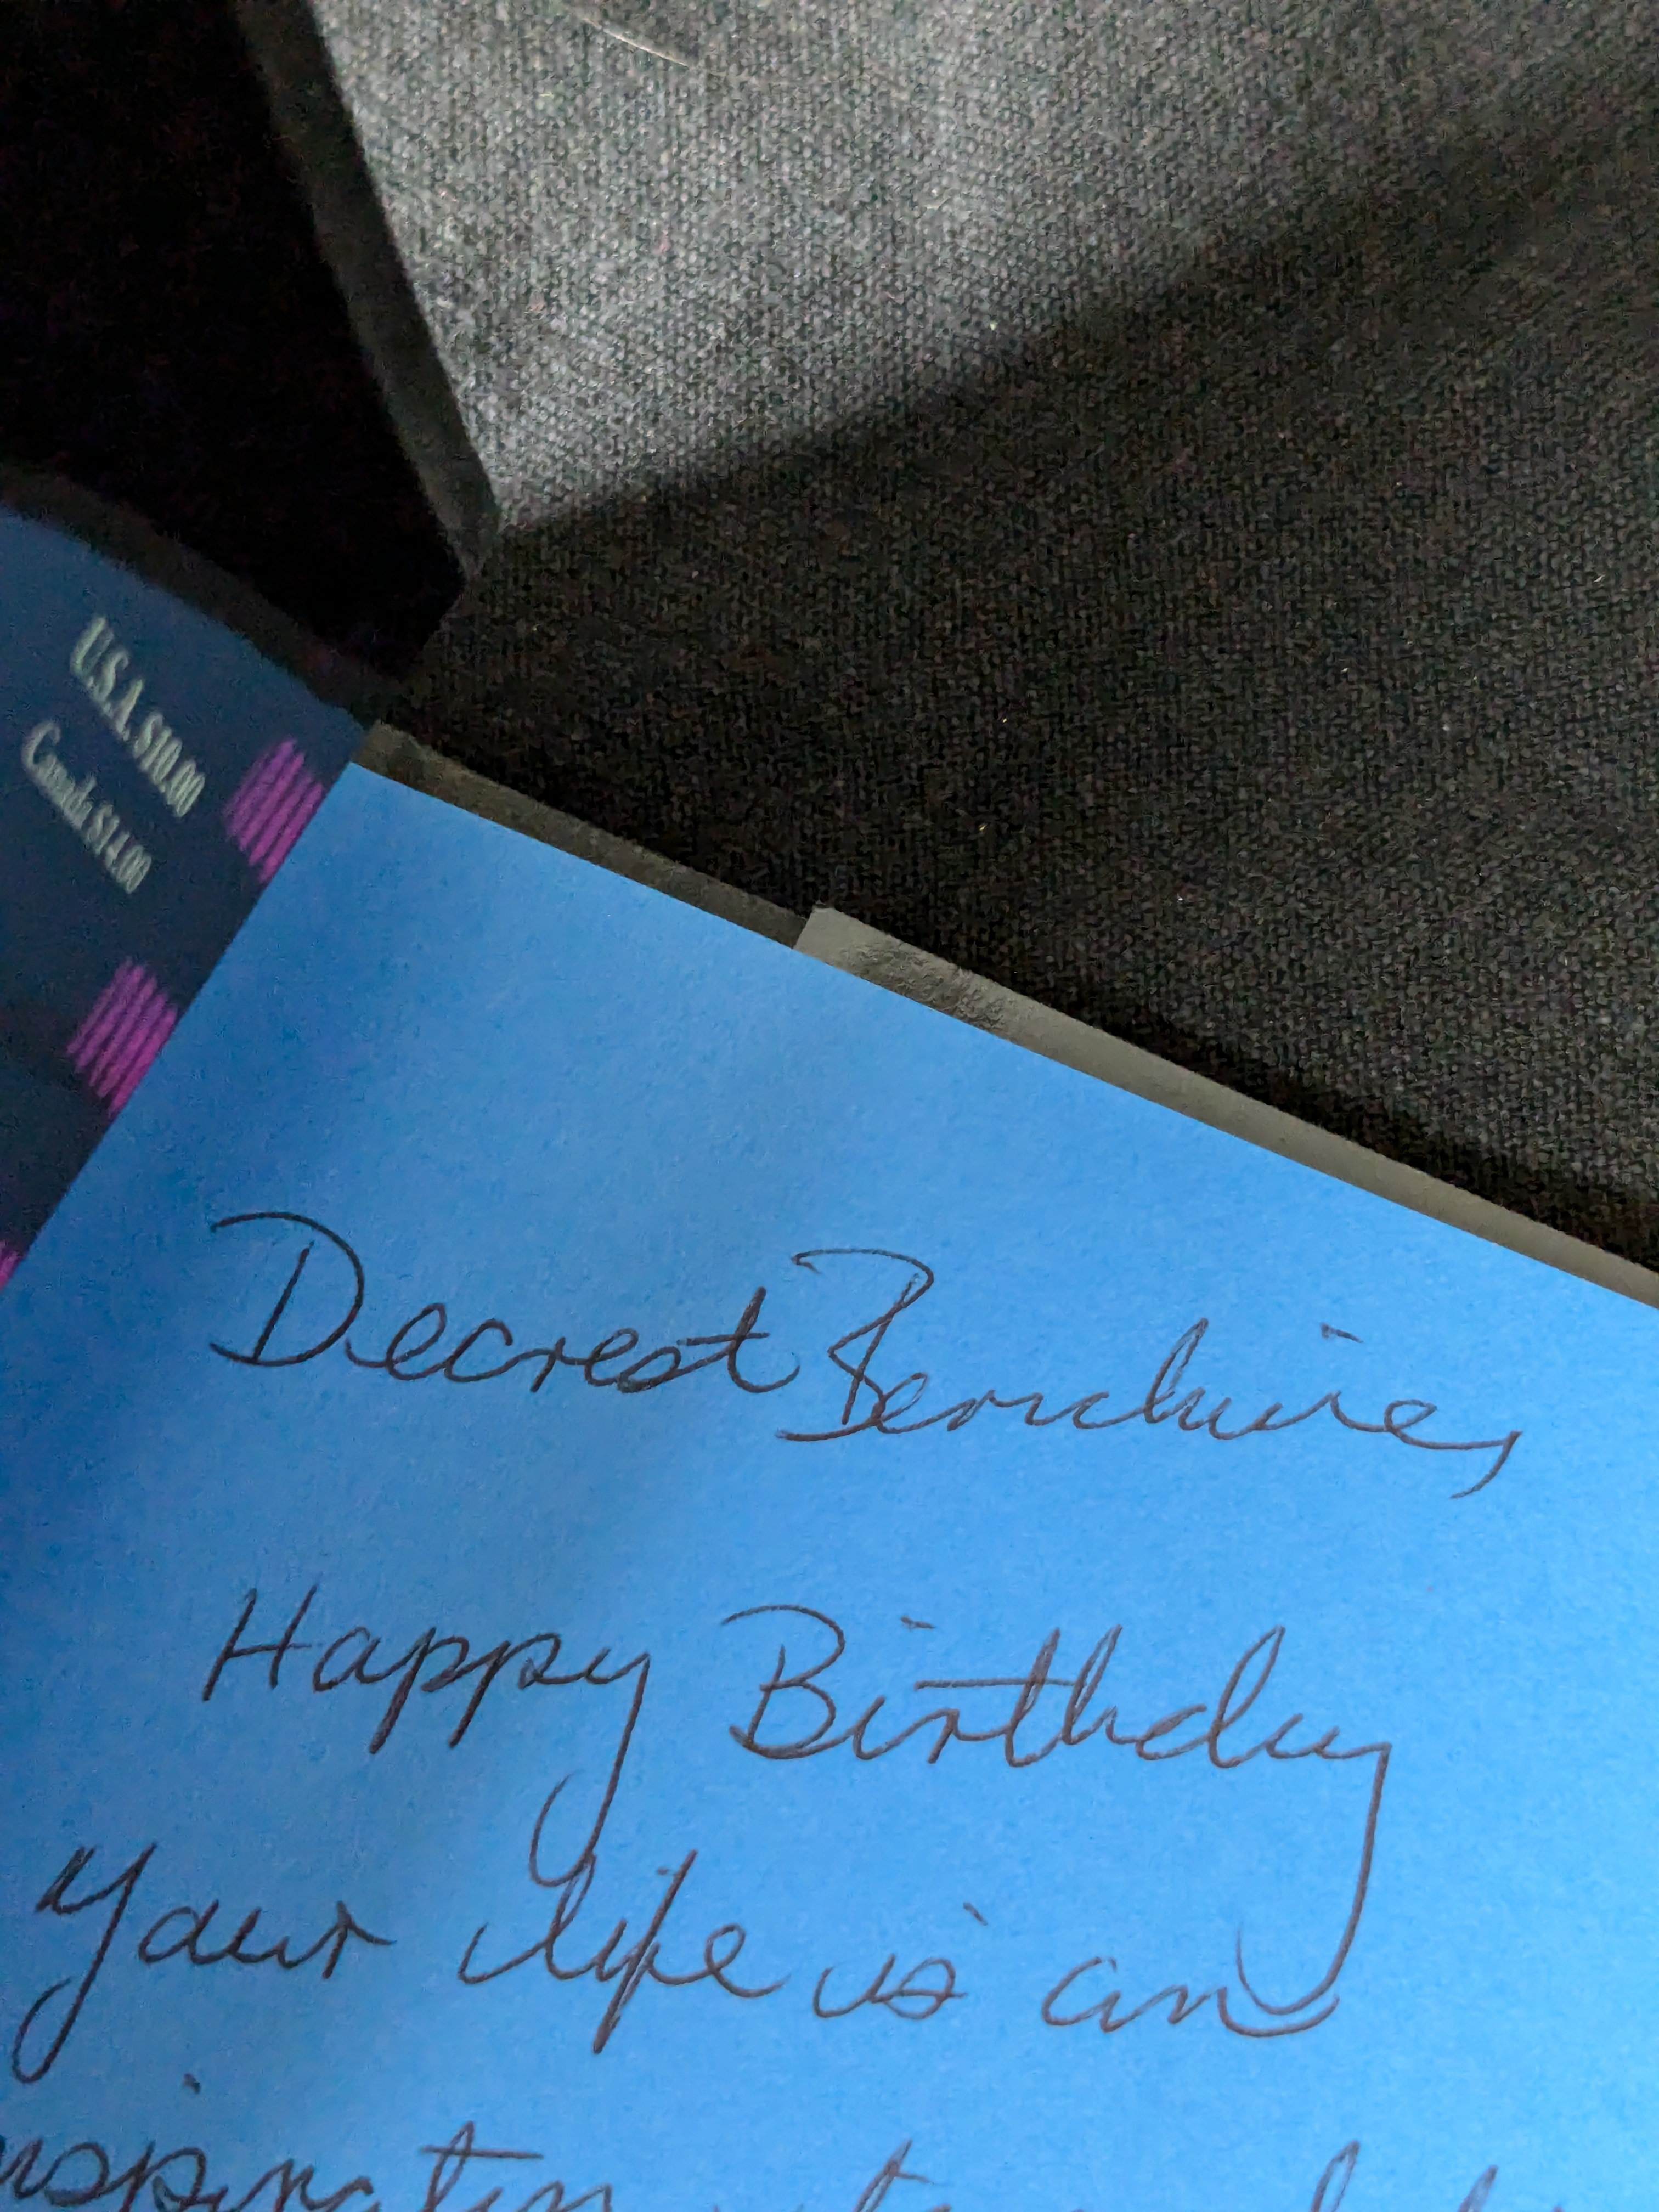 U.S.A. $10.00
Canada $14.00
Dearest
Happy Birthday
Your life is an
inspiration to